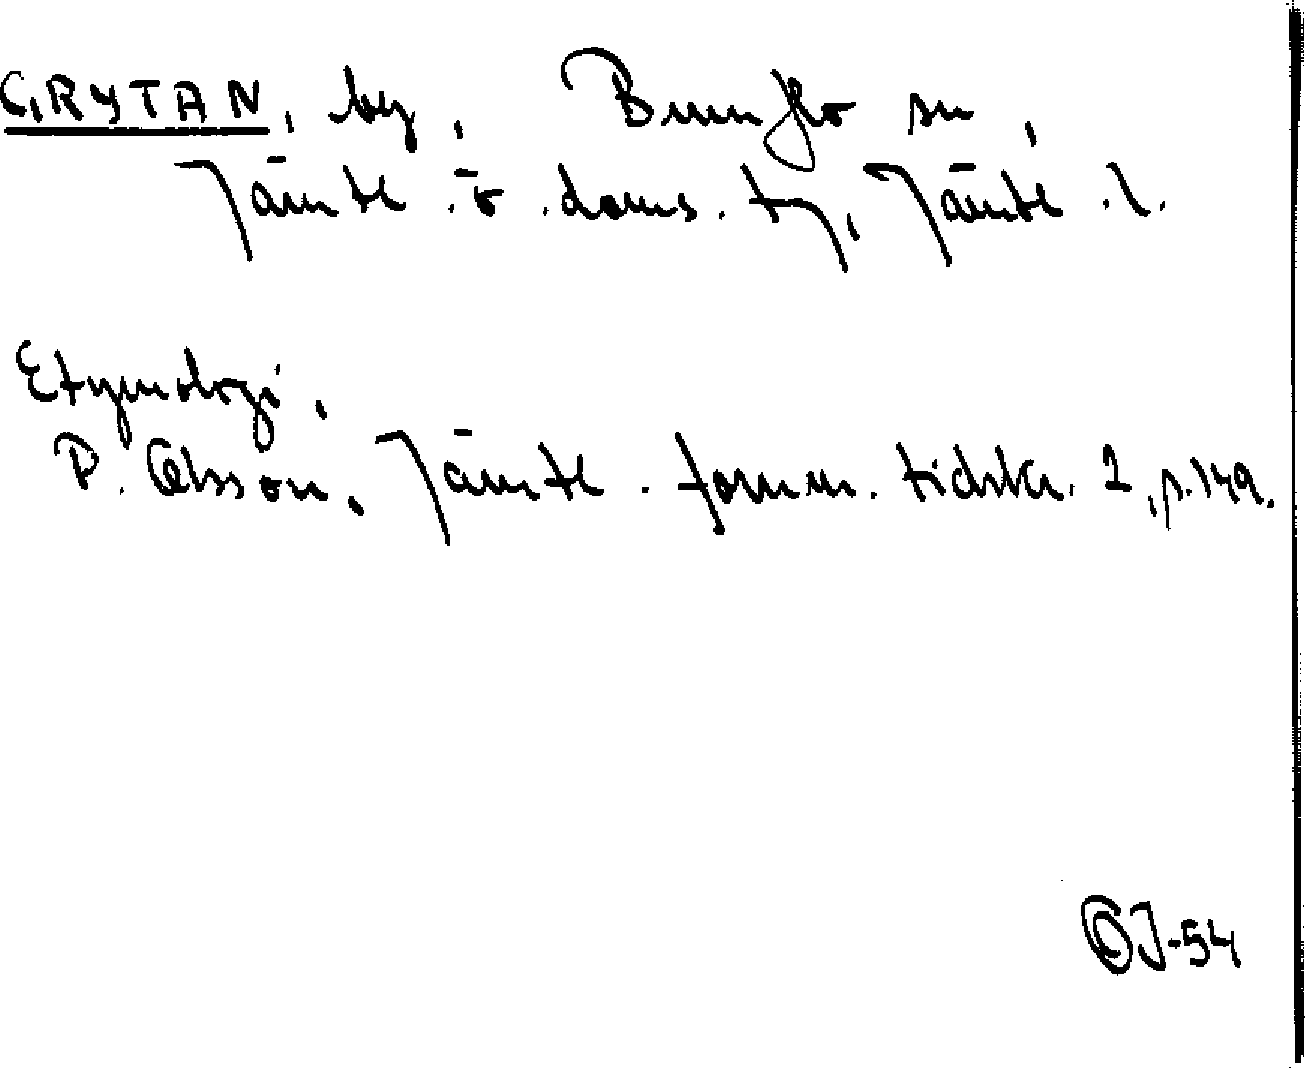 GRYTAN, by, Brunflo sn,
Jämtl. ö. doms. tg, Jämtl. l.
Etymologi.
P. Olsson, Jämtl. fornm. tidskr. 2, s. 149.
OJ-54